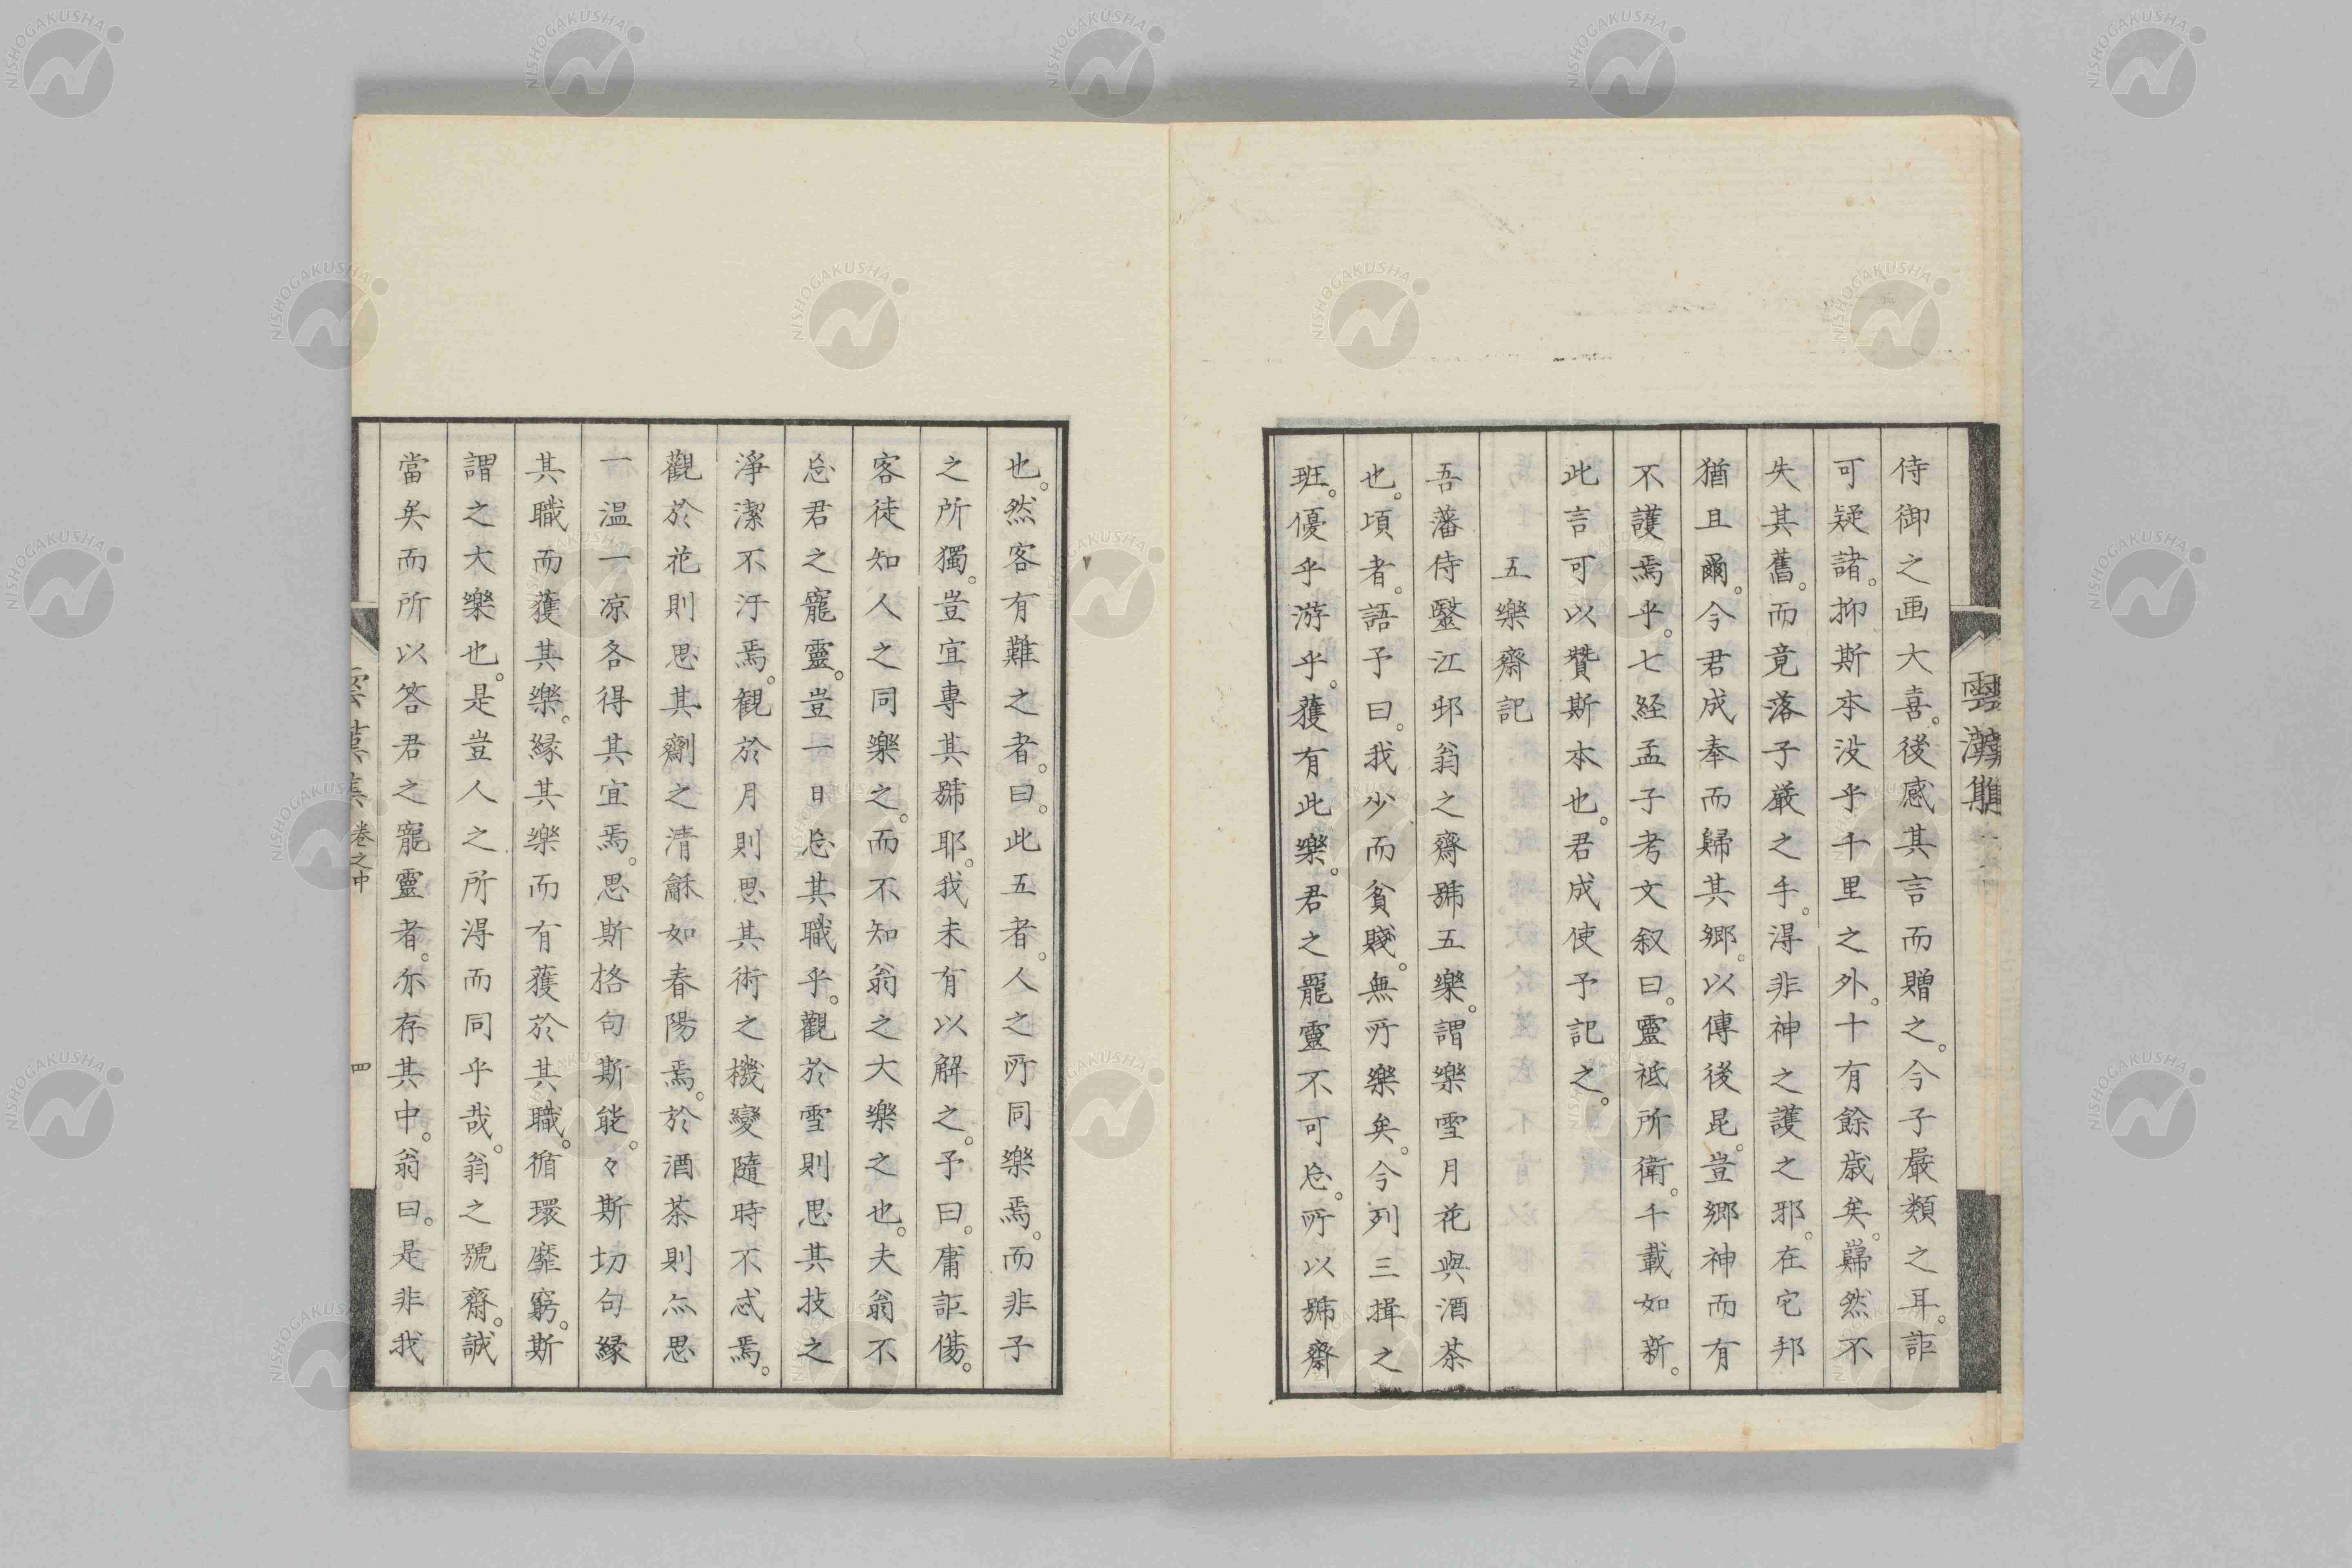 侍御之画大喜。後感其言而贈之。今子嚴類之耳。詎
可疑諸。抑斯本没乎千里之外。十有餘歳矣。歸然不
失其舊。而竟落子厳之手。得非神之護之邪。在它邦
猶且爾。今君成奉而歸其郷。以傳後昆。豈郷神而有
不護焉乎。七経孟子考文叙曰。靈祗所衛。千載如新。
此言可以賛斯本也。君成使予記之。
五樂齋記
吾藩侍毉江邨翁之齋號五樂。謂樂雪月花與酒茶
也。頃者。語予曰。我少而貧賤。無所樂矣。今列三揖之
班。優乎游乎。獲有此樂。君之寵靈不可忘。所以號齋
也。然客有難之者。曰。此五者。人之所同樂焉。而非子
之所獨。豈宜專其號耶。我未有以解之。予曰。庸詎傷。
客徒知人之同樂之。而不知翁之大樂之也。夫翁不
忘君之寵靈。豈一日忘其職乎。觀於雪則思其技之
淨潔不汙焉。観於月則思其術之機變隨時不忒焉。
觀於花則思其劑之清龢如春陽焉。於酒茶則亦思
一温一凉各得其宜焉。思斯格句斯能。々斯切句縁
其職而獲其樂。縁其樂而有獲於其職。循環靡窮。斯
謂之大樂也。是豈人之所得而同乎哉。翁之號齋。誠
當矣而所以答君之寵靈者。亦存其中。翁曰。是非我
卷之中
四